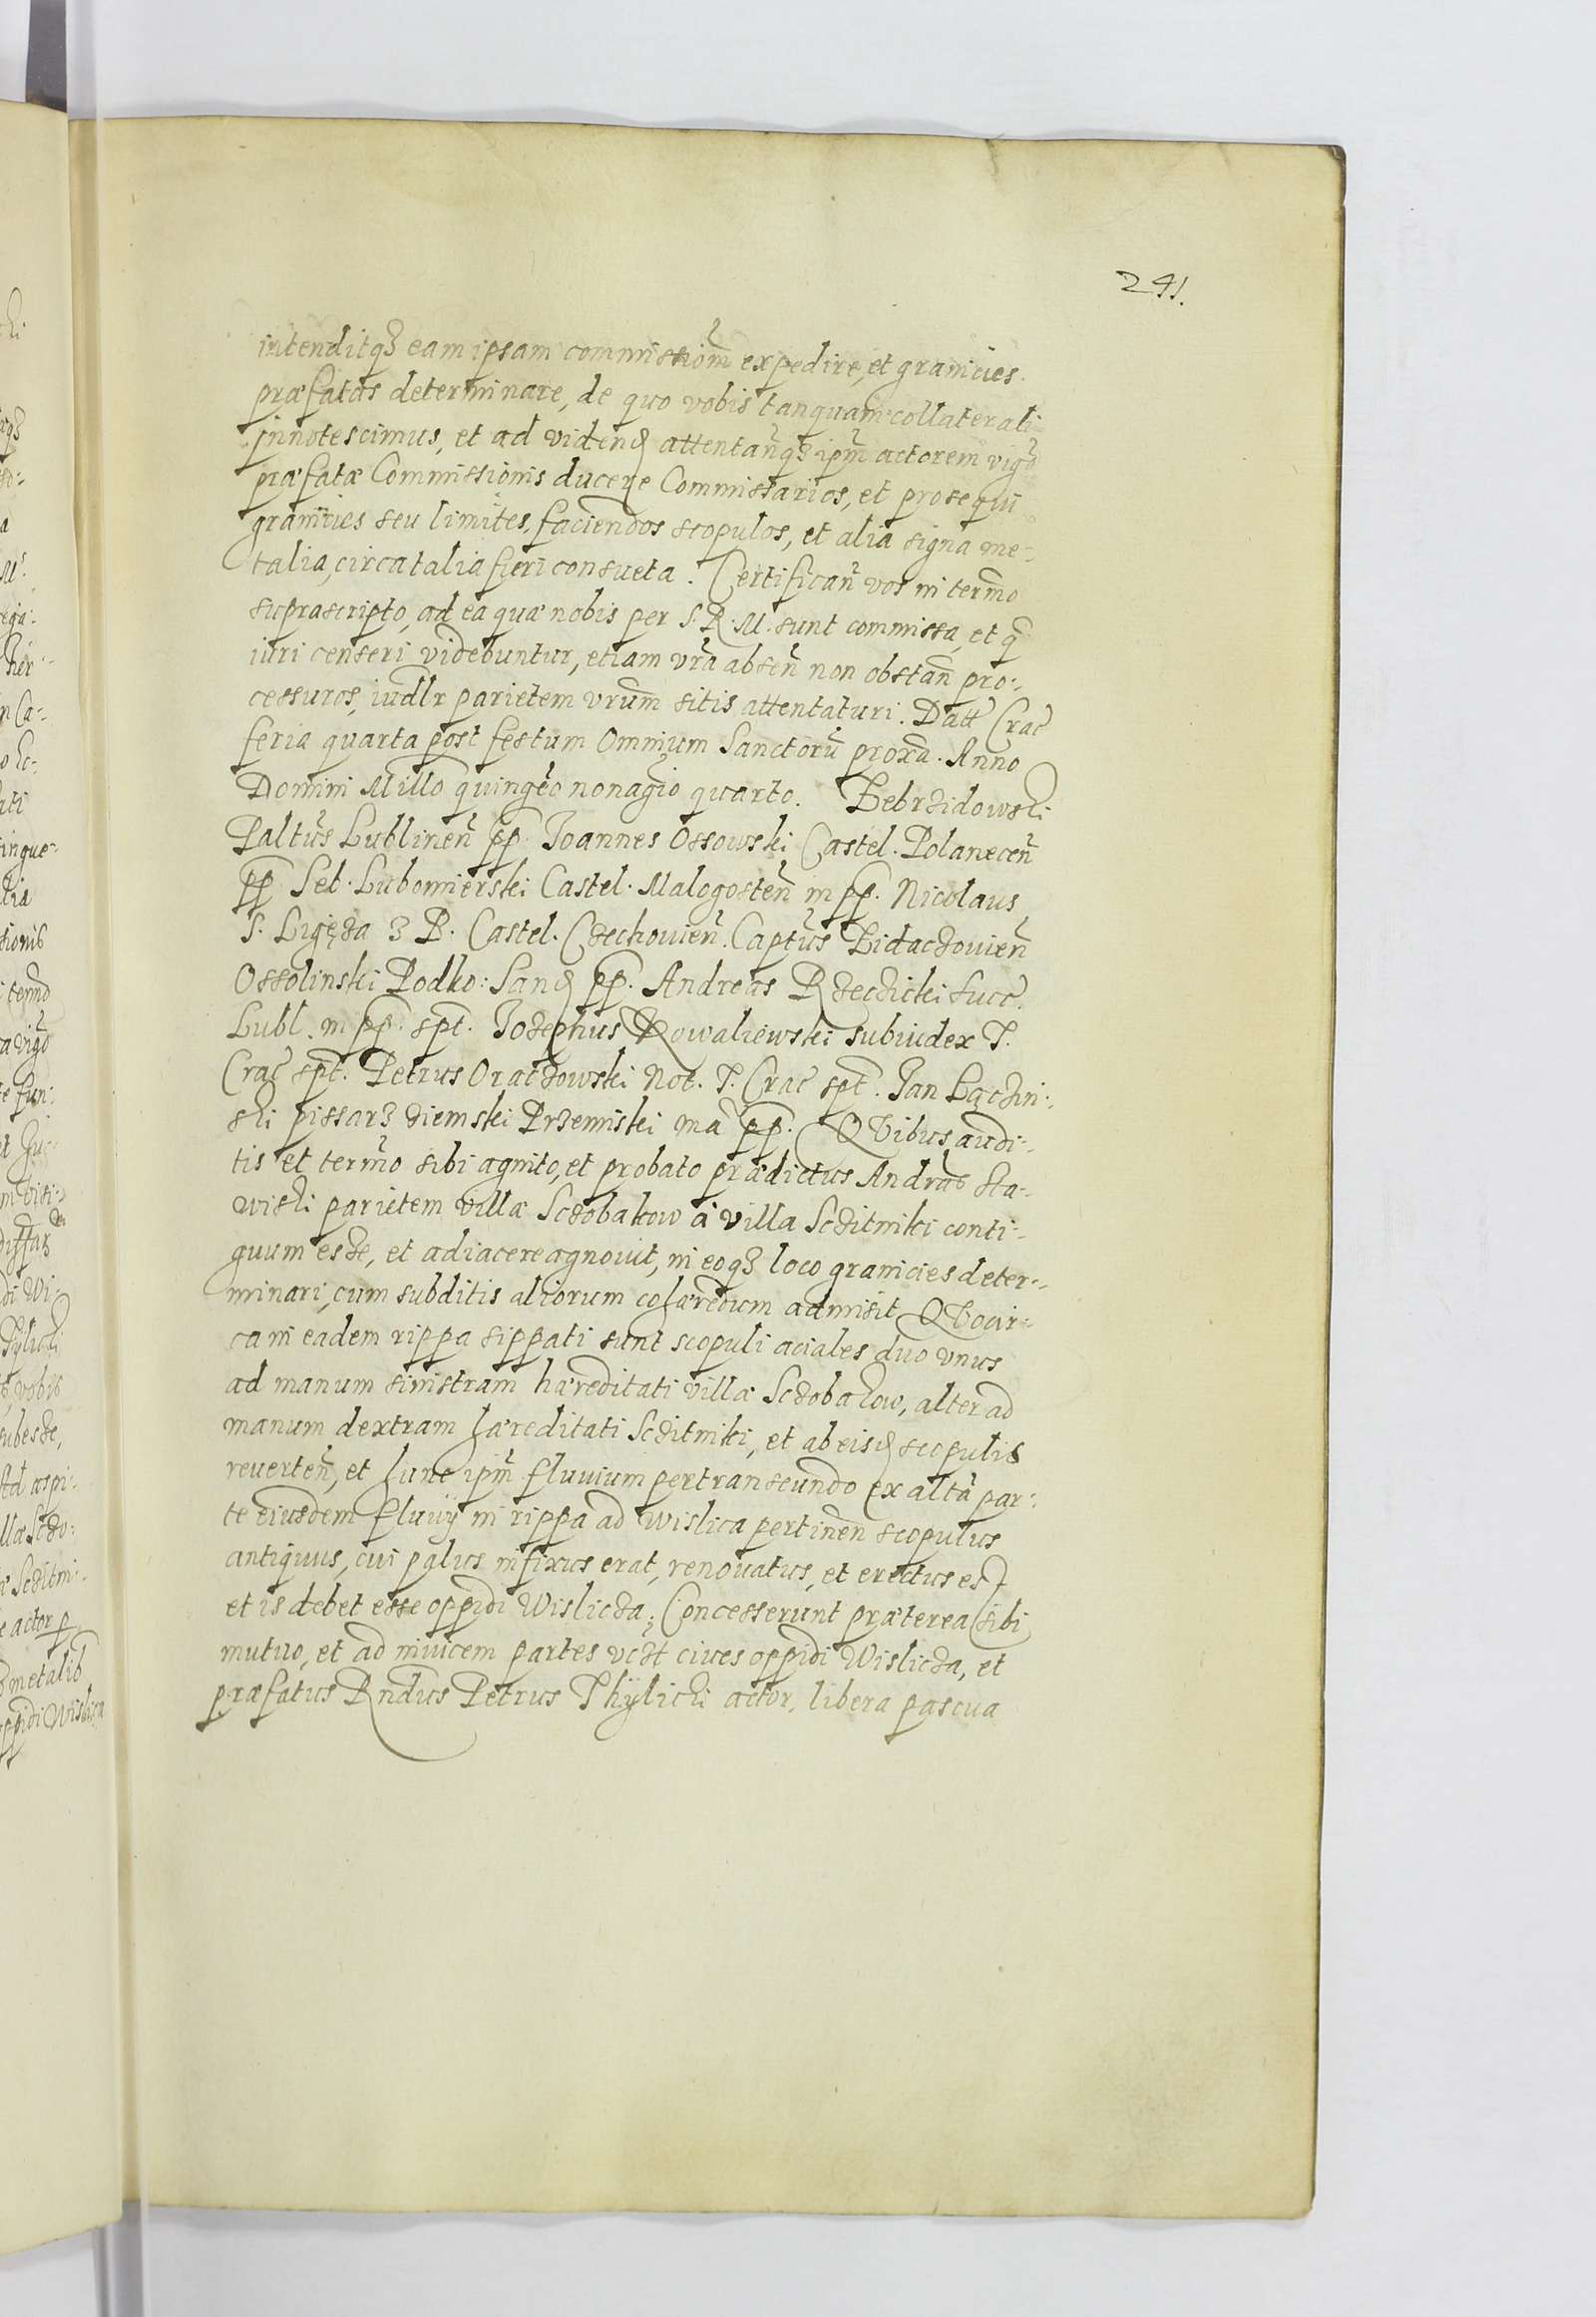 241.
intenditqȝ eam ipsam commissiom̃ expedire, et granicies
præfatas determinare, de quo vobis tanquam collaterali
innotescimus, et ad videnđ attentañqȝ ipm̃ actorem vigo᷑
præfatæ Commissionis ducere Commissarios, et prosequi
granicies seu limites, faciendos scopulos, et alia signa me-
talia, circa talia fieri consueta. Certificañ vos in termõ
suprascripto, ad ea quæ nobis per S. R. M. sunt commissa, et q̃
iuri censeri videbuntur, etiam vrã absen̄ non obstañ pro:
cessuros, iudlr parietem vrum̃ sitis attentaturi. Datt Crac̃
feria quarta post festum Omnium Sanctorũ proxã. Anno
Domini Millõ quingẽo nonagĩo quarto. Zebrzidowski
Paltũs Lublineñ pp. Joannes Ossowski Castel. Polaneceñ
pp Seb. Lubomierski Castel. Malogosteñ m pp. Nicolaus
S. Ligęza ȝ B. Castel. Czechouieñ. Captũs Bidaczouieñ
Ossolinski Podko: Sanđ pp. Andreas Rzeczicki succ̃.
Lubl. m pp. spt. Josephus Kowaliewski subiudex T.
Crac̃ spt. Petrus Oraczowski Not. T. Crac̃ spt. Jan Łączin:
ski pissarȝ ziemski Przemiski mã pp. QVibus audi:
tis et termõ sibi agnito, et probato prædictus Andrãs Sta:
wiski parietem villæ Sczobakow à villa Sczitniki conti:
guum esse, et adiacere agnouit, in eoqȝ loco granicies deter:
minari, cum subditis aliorum cohæredum admisit QVocir:
ca in eadem rippa sippati sunt scopuli aciales duo vnus
ad manum sinistram hæreditati villæ Sczobakow, alter ad
manum dextram hæreditati Sczitniki, et ab eisđ scopulis
reuerteñ, et hunc ipm̃ fluuium pertranseundo ex altã par:
te eiusdem fluuij in rippa ad Wislica pertineñ scopulus
antiquus, cui palus infixus erat, renouatus, et erectus est
et is debet esse oppidi Wislicza; Concesserunt præterea sibi
mutuo, et ad inuicem partes vczt ciues oppidi Wislicza, et
præfatus Rndus Petrus Thÿlicki actor, libera pascua